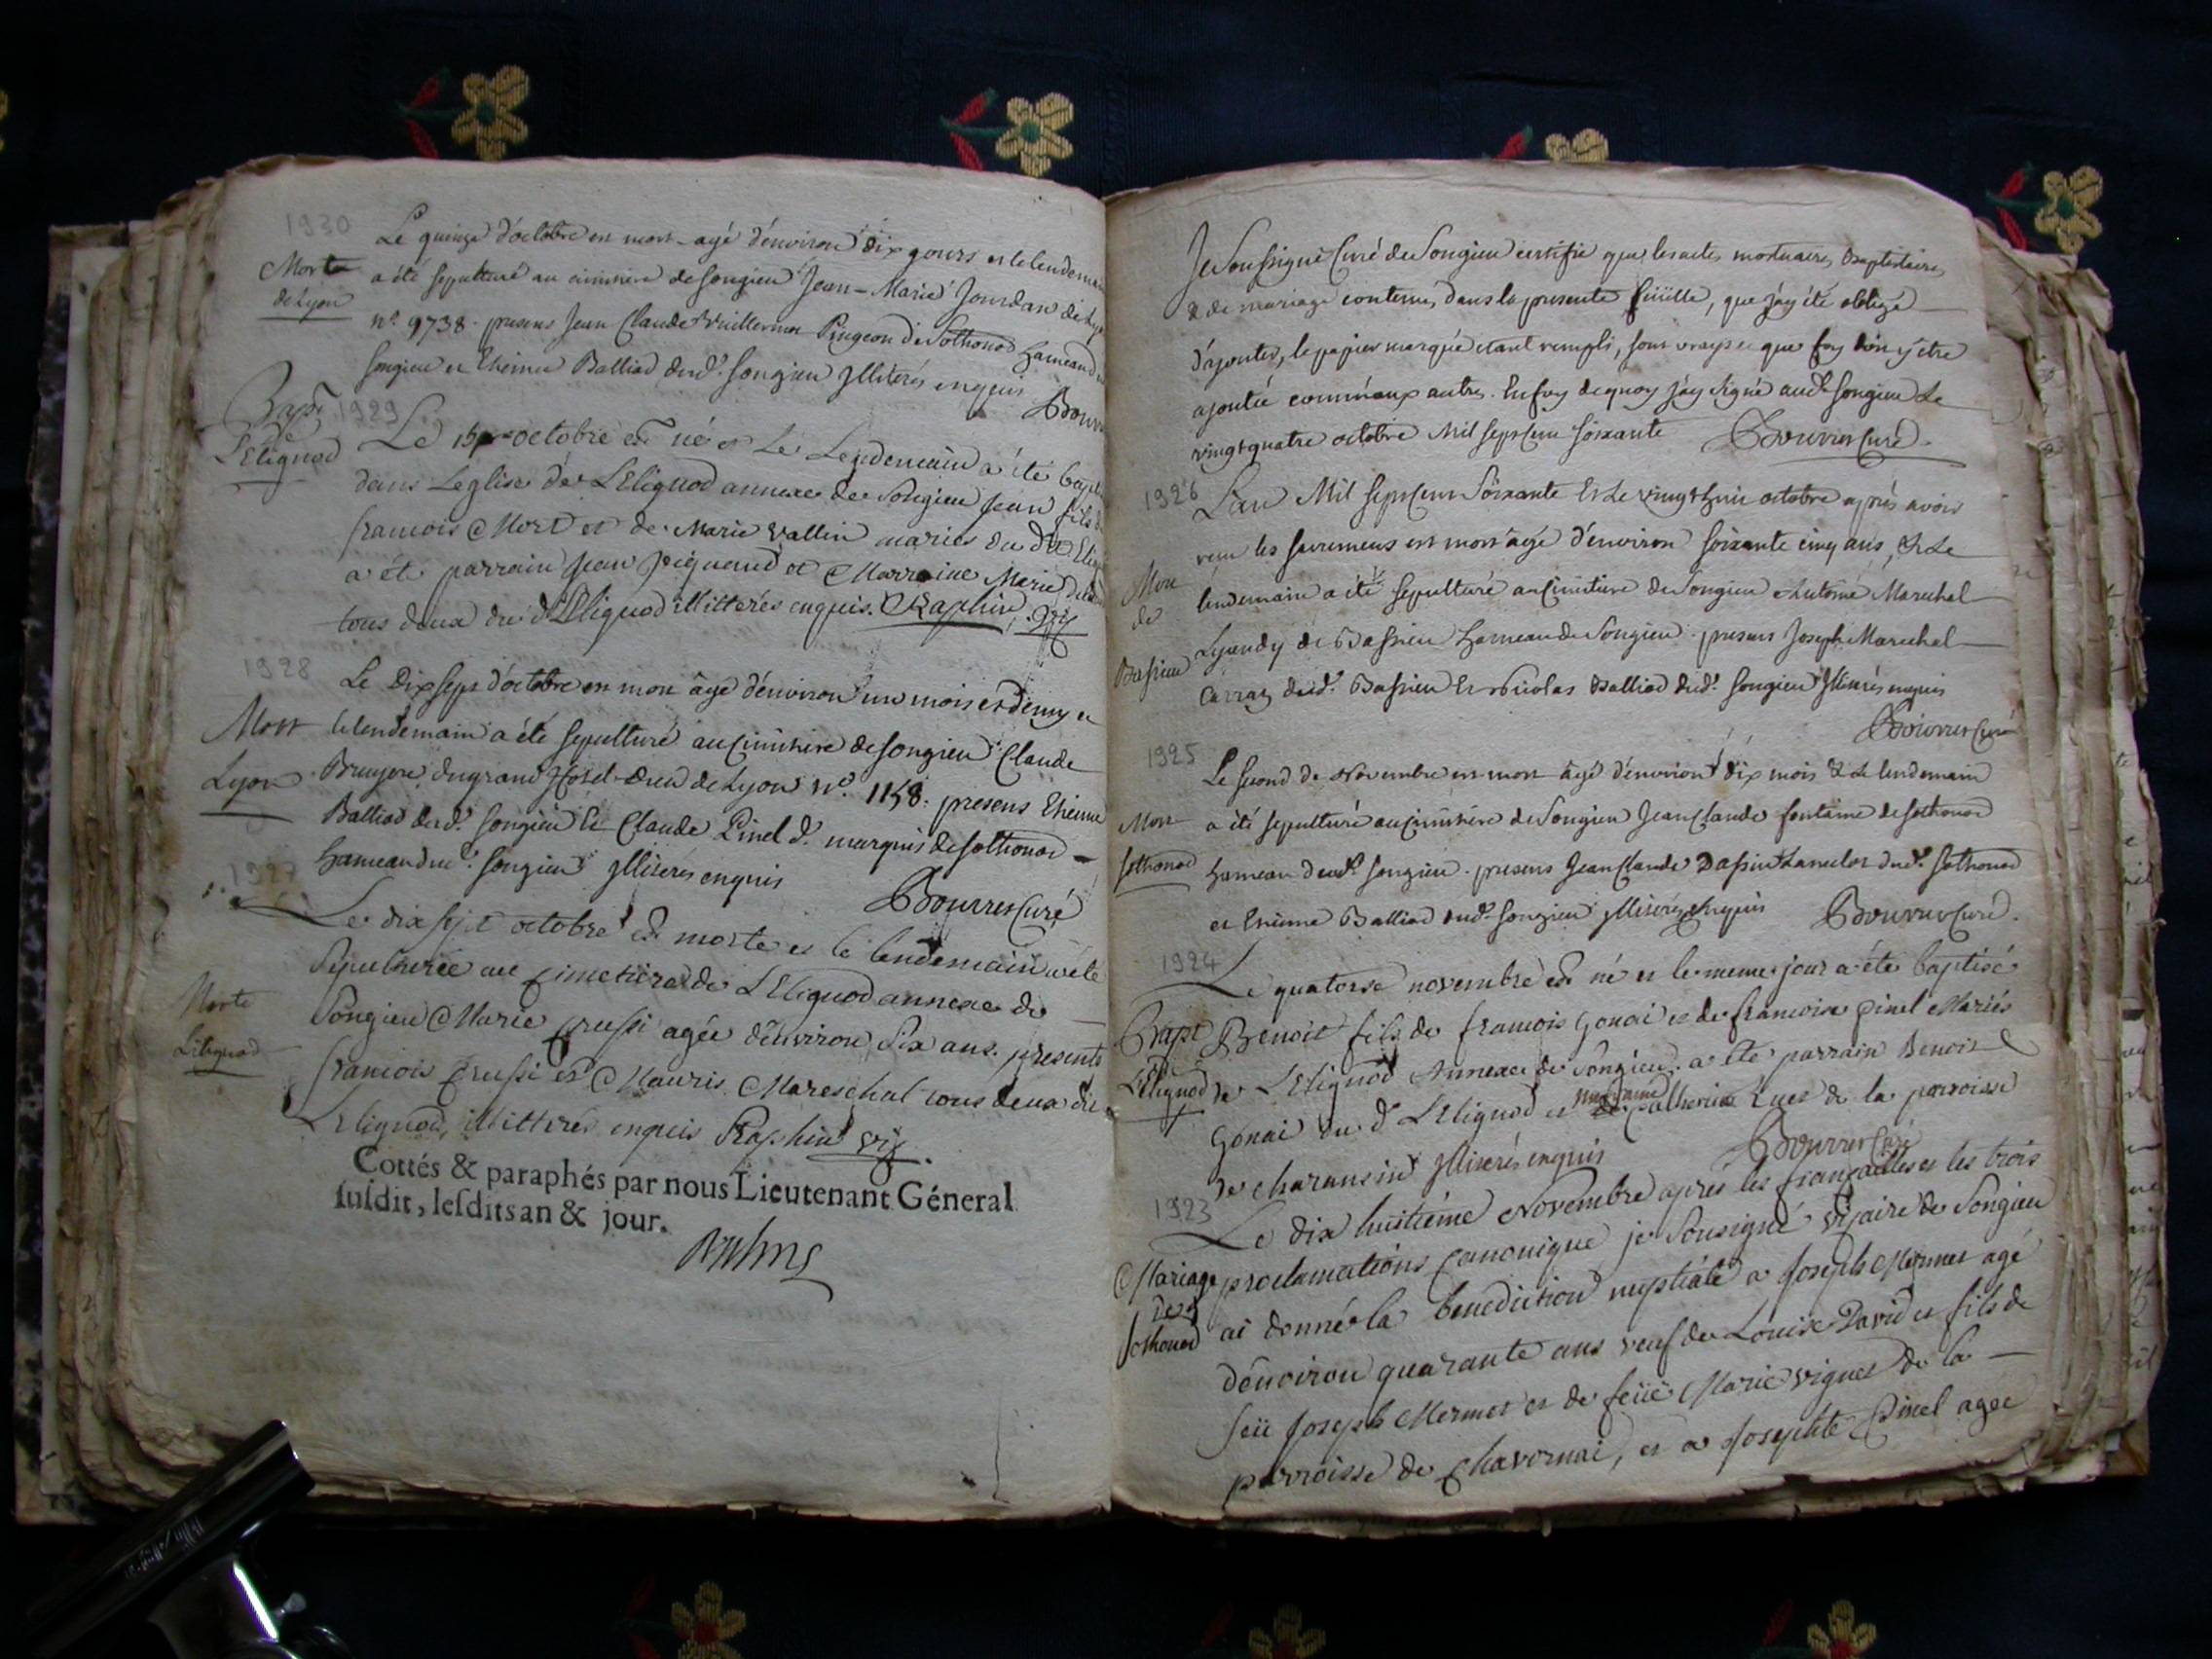 1930
Le quinze d'octobre est mort agé d'environ dix jours et le lendemain
Morte a été sepulturé au cimitiere de songieu Jean-Marie Jourdan de Lyon
de Lyon n.º 9738. presens Jean Claude Vuillermoz Pingeon de Sothonod hameau
songieu et Etienne Balliod dud.t songieu Illiterés enquis
Bourr
Bapt 1929
de LEliguod Le 15 octobre est né et Le Lendemain a été
dans Leglise de LEliguod annexe de Songieu jean fils
francois Mort et de Marie Vallin mariés du dit
a été parrain jean et Marraine Marie
tous deux du d.t LEliguod illitterés enquis. Raphin, vic
1928
Le Dix sept d'octobre est mort âgé d'environ un mois et demy et
Mort le lendemain a été sepulturé au Cimitiere de songieu Claude
Lyon Bruyere du grand hotel-Dieu de Lyon n.º 1158. presens Etienne
Balliod dud.t songieu et Claude Pinel d.t marquis de sothonod
hameau dud.t songieu Illiterés enquis
Bourrer Curé
1927
Le dix sept octobre est morte et le lendemain a été
Sepulturée au cimetiere de LEliguod annexe de
Morte Songieu Marie Crussi agée d'environ Six ans. presents
Leliguod francois Crussi et Mauris Mareschal tous deux du
Leliguod, illitterés enquis Raphin vic.
Cottés & paraphés par nous Lieutenant Géneral
susdit, lesdits an & jour.
Je Soussigné Curé de Songieu certifie que les actes mortuaires, Baptistaires,
& de mariage contenus dans la presente feüille, que j'ay été obligé
d'ajouter, le papier marqué etant rempli, sont vrays et que foy doit y être
ajoutée comme aux autres. En foy de quoy j'ay signé aud.t songieu Le
vingt quatre octobre Mil sept Cent soixante Bourrer Curé.
1926
L'an Mil sept Cent Soixante Et Le vingt huit octobre après avoir
reçu les sacremens est mort âgé d'environ soixante cinq ans, Et Le
Mort lendemain a été sepulturé au Cimitiere de Songieu Antoine Marechal
de Lyandy de Bassieu hameau de Songieu. presens Joseph Marechal
Bassieu Carraz dud.t Bassieu Et Nicolas Balliod dud.t songieu Illiterés enquis
Bourrer Curé
1925
Le second de Novembre est mort âgé d'environ dix mois & Le lendemain
Mort a été sepulturé au Cimitiere de Songieu Jean Claude fontaine de sothonod
sothonod hameau dud.t songieu. presens Jean Claude Dassin Lancelot dud.t sothonod
et Etienne Balliod dud.t songieu Illiterés Enquis Bourrer Curé.
1924
Le quatorse novembre est né et le meme jour a été baptisé
Bapt Benoit fils de francois Gonai et de francoise pinel Mariés
de LEliguod de LEliguod Annexe de Songieu. a été parrain Benoit
Gonai du d.t LEliguod et marraine Catherine Luez de la parroisse
de charansin Illiterés enquis Bourrer Curé
1923
Le dix huitième Novembre apres les fiançailles et les trois
Mariage proclamations canonique je Sousigné vicaire de Songieu
de Sothonod ai donné la benediction nuptiale a joseph Mermet agé
d'environ quarante ans veuf de Louise David et fils de
feü joseph Mermet et de feüe Marie vignet de la
parroisse de Chavornai, et a josephte Pinel agée